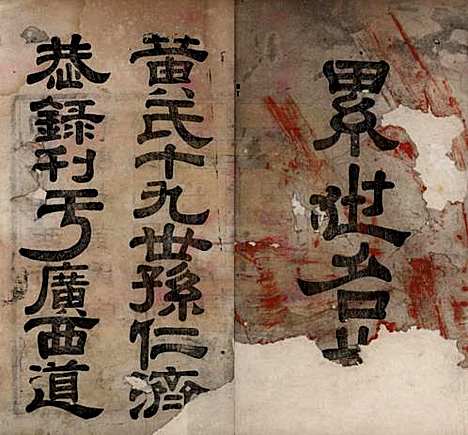 累世吉
黃氏十九世孫仁濟
恭錄刊于廣西道